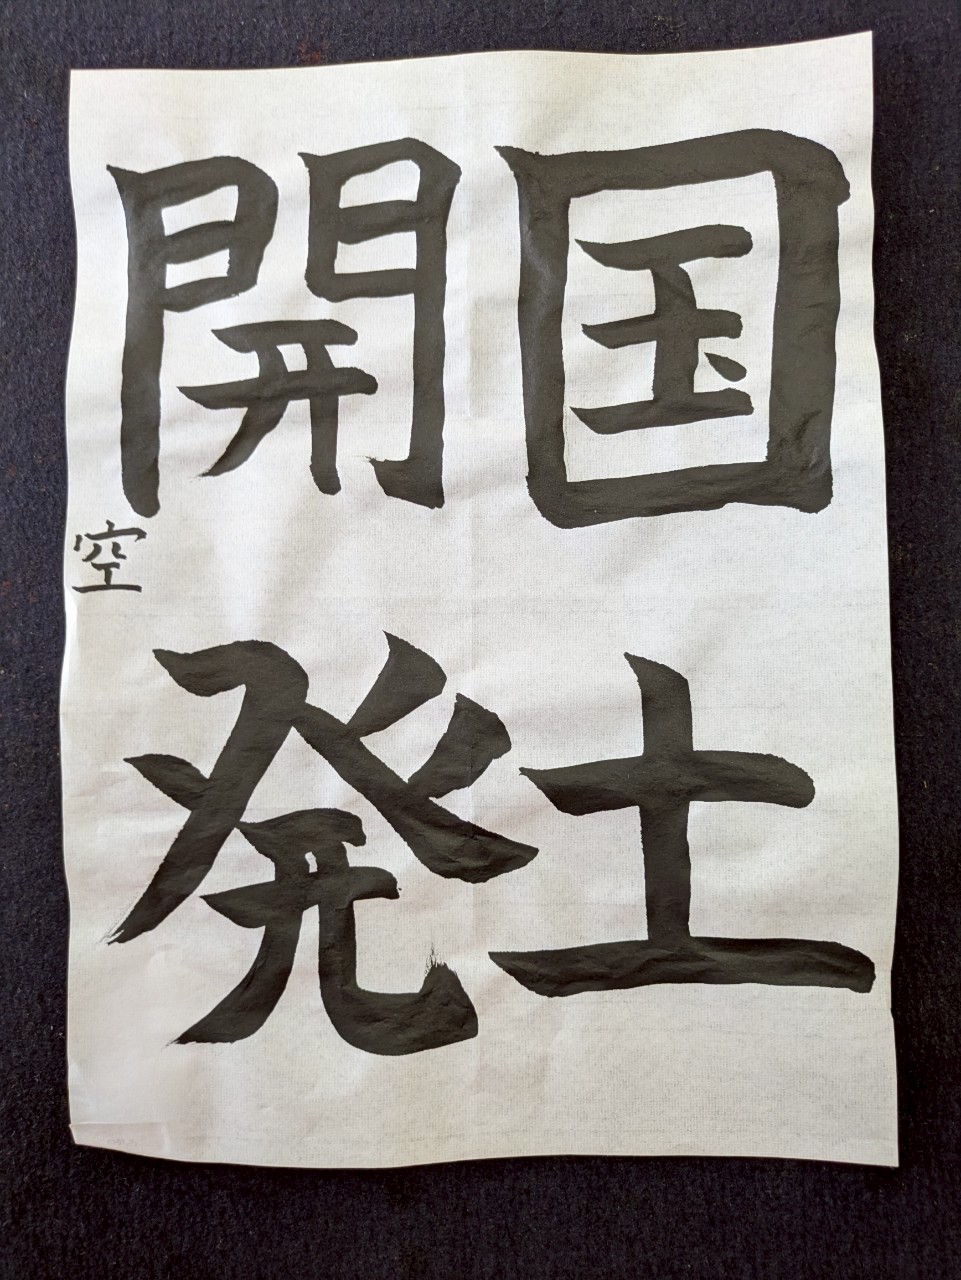 国土
開発
空